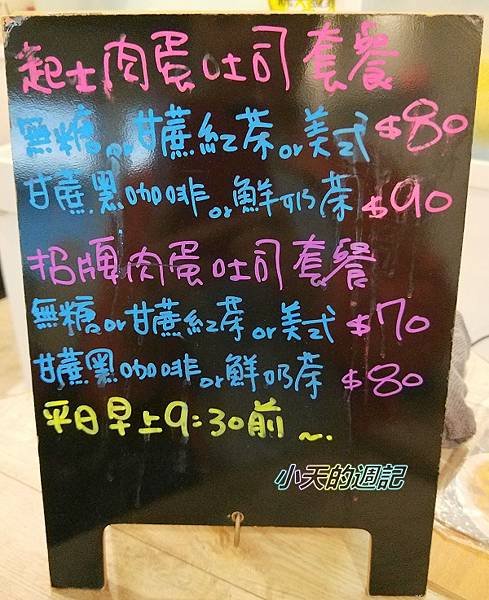 起士肉蛋吐司套餐
無糖or甘蔗紅茶or美式 $80
甘蔗黑咖啡or鮮奶茶 $90
招牌肉蛋吐司套餐
無糖or甘蔗紅茶or美式 $70
甘蔗黑咖啡or鮮奶茶 $80
平日早上9:30前~.
小天的週記